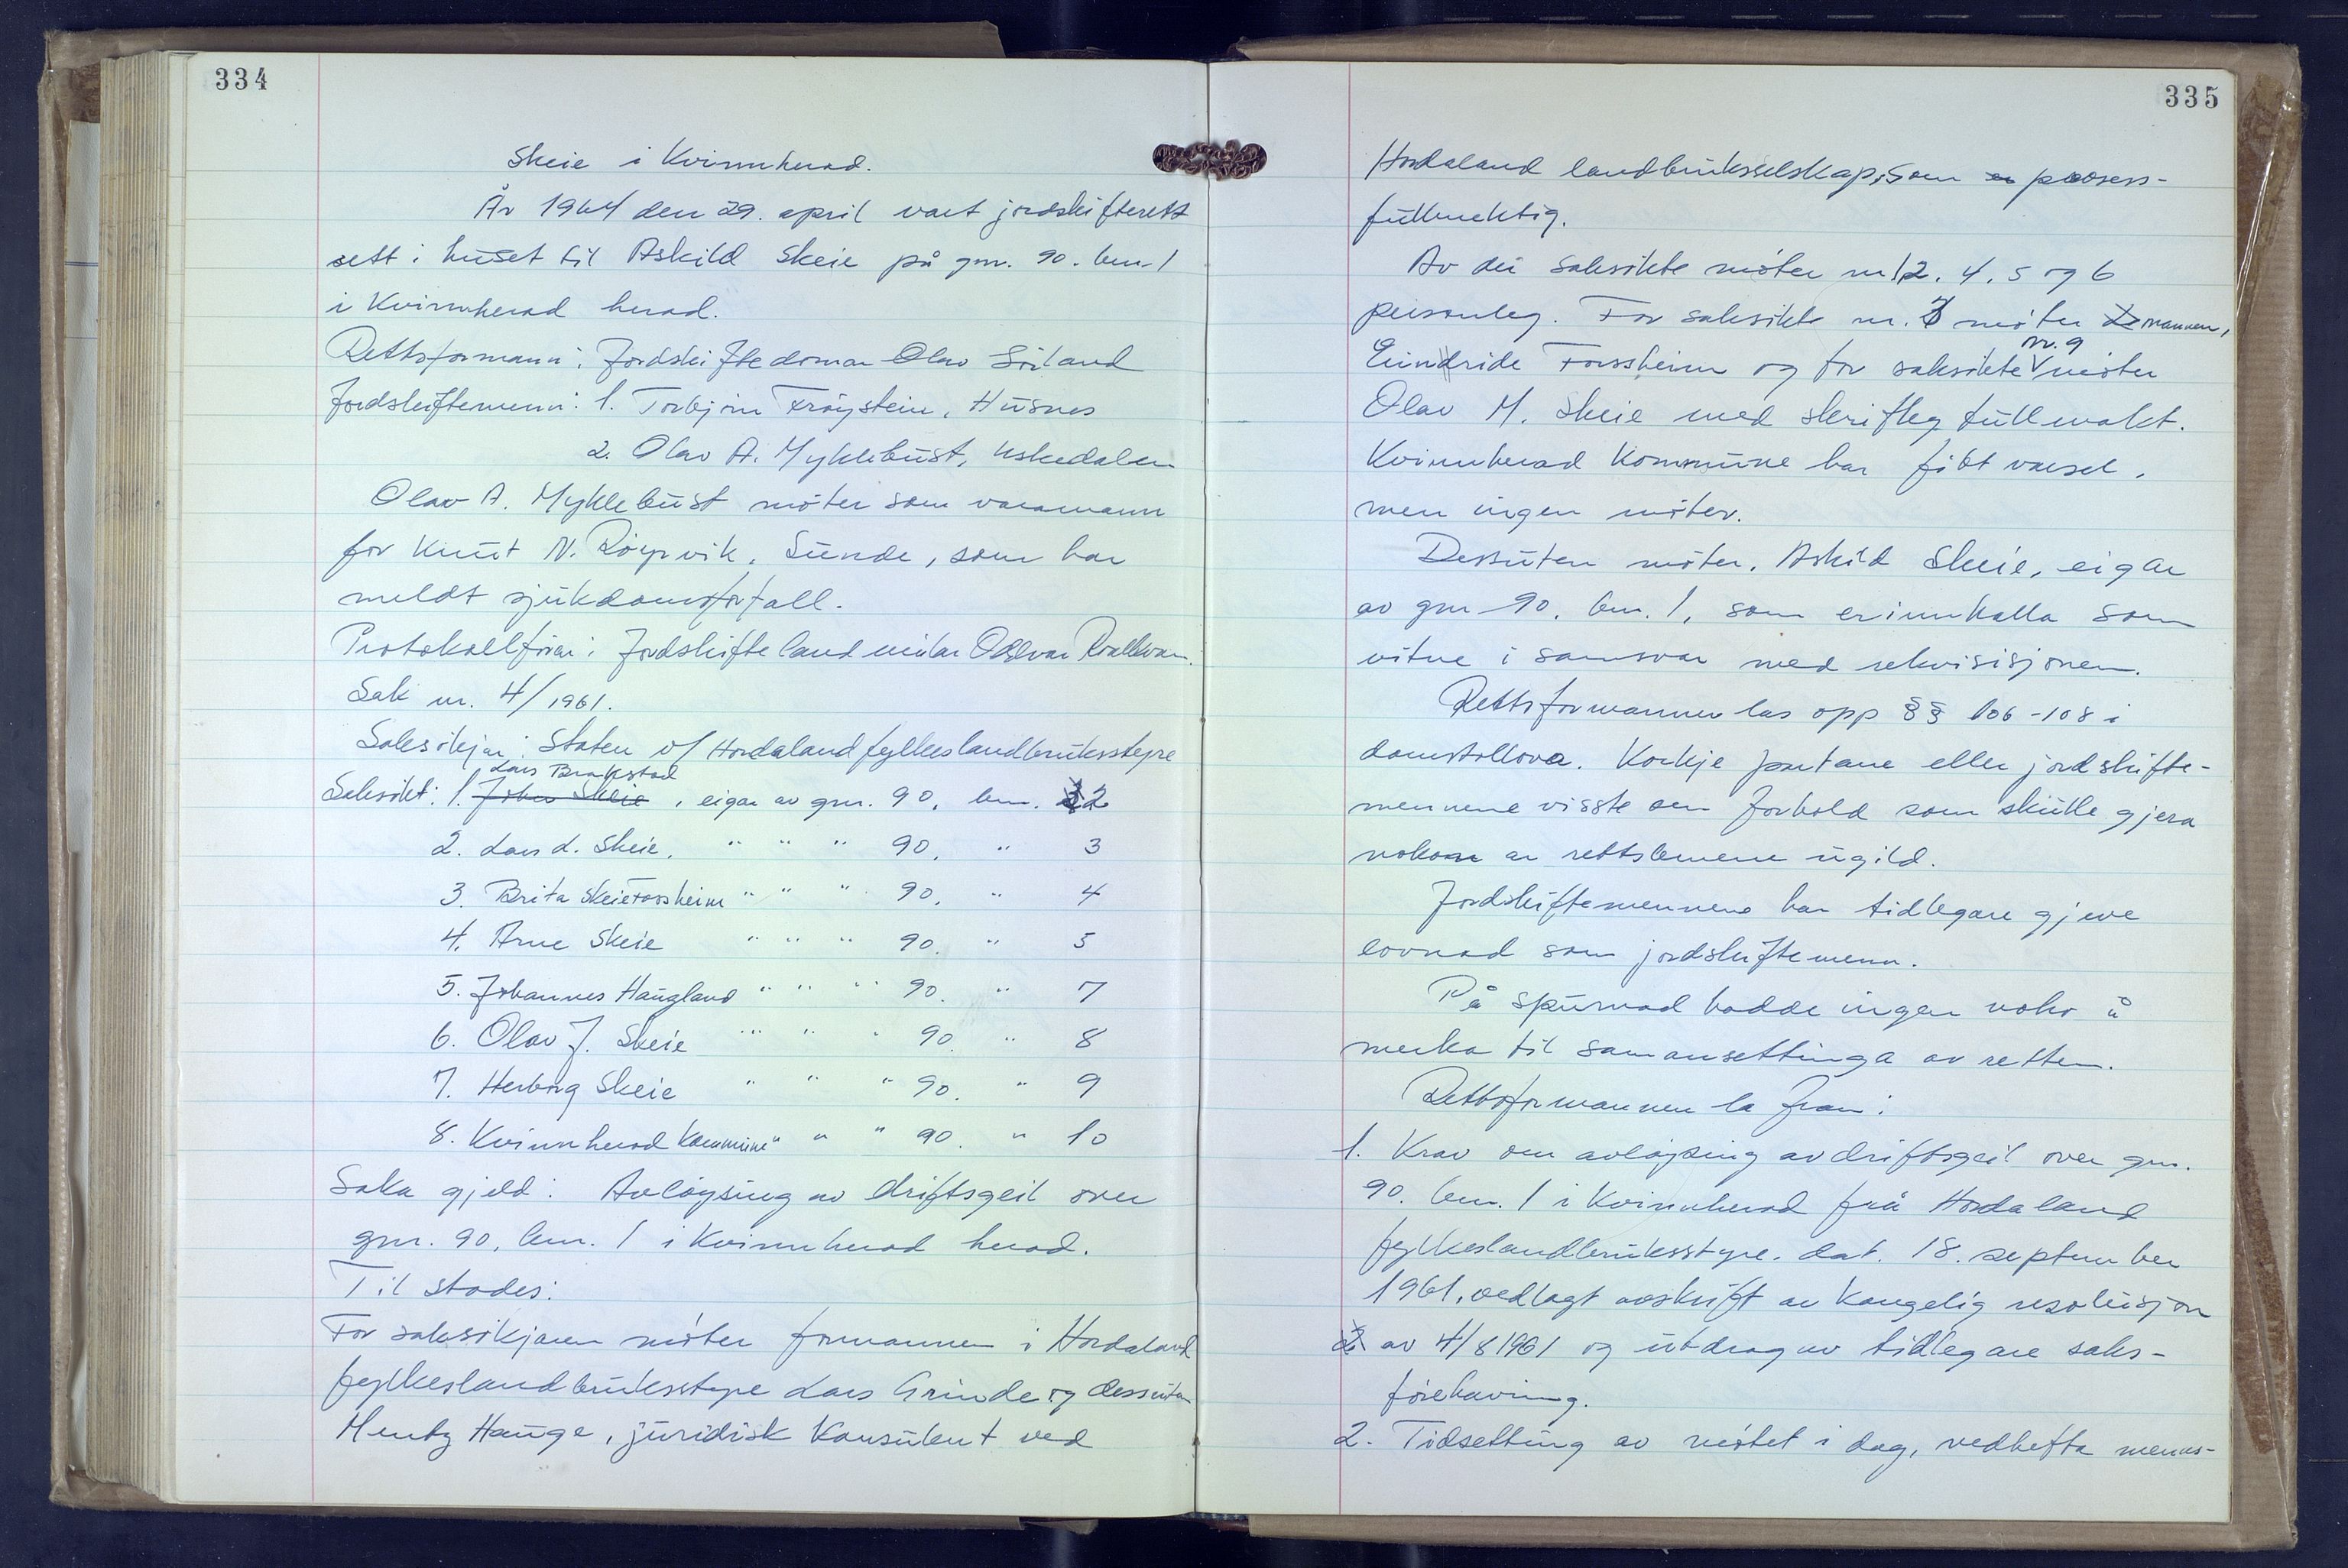 334
Skeie i Kvinnherad.
År 1964 den 29. april vart jordskifterett
sett i huset til Askild Skeie på gnr. 90. bnr. 1
i Kvinnherad herad.
Rettsformann: Jordskiftedomar Olav Söiland
Jordskiftemenn: 1. Torbjörn Fröystein, Husnes
2. Olav A. Myklebust, Uskedalen
Olav A. Myklebust möter som varamann
for Knut N. Röyrvik, Sunde, som har
meldt sjukdomsforfall.
Protokollförar: Jordskiftelandmålar Oddvar
Sak nr. 4/1961.
Saksökjar: Staten v/ Hordaland fylkeslandbruksstyre
Lars Brakstad
Saksökt: 1. John Skeie, eigar av gnr. 90, bnr. 2
2. Lars L. Skeie, " " " 90, " 3
3. Brita Skeie Forssheim " " " 90, " 4
4. Arne Skeie " " " 90. " 5
5. Johannes Haugland " " " 90. " 7
6. Olav J. Skeie " " " 90. " 8
7. Herborg Skeie " " " 90. " 9
8. Kvinnherad Kommune " " " 90. " 10
Saka gjeld: Avlöysing av driftsgeil over
gnr. 90, bnr. 1 i Kvinnherad herad.
Til stades:
For saksökjaren möter formannen i Hordaland
fylkeslandbruksstyre Lars Grinde og dessutan
Mentz Hauge, juridisk Konsulent ved
335
Hordaland landbruksselskap, som prosess-
fullmektig.
Av dei saksökte möter nr 1, 2. 4, 5 og 6
personleg. For saksökte nr. 3 möter mannen,
Eindride Forssheim og for saksökte möter
nr. 9
Olav M. Skeie med skriftleg fullmakt.
Kvinnherad Kommune har fått varsel,
men ingen möter.
Dessutan möter, Askild Skeie, eigar
av gnr 90, bnr. 1, som er innkalla som
vitne i samsvar med rekvisisjonen.
Rettsformannen las opp §§ 106-108 i
domstollova. Korkje partane eller jordskifte-
mennene visste om forhold som skulle gjera
nokon av rettslemene ugild.
Jordskiftemennene har tidlegare gjeve
lovnad som jordskiftemenn.
På spurnad hadde ingen noko å
merka til samansettinga av retten.
Rettsformannen la fram:
1. Krav om avlöysing av driftsgeil over gnr.
90. bnr. 1 i Kvinnherad frå Hordaland
fylkeslandbruksstyre, dat. 18. september
1961, vedlagt avskrift av Kongelig resolusjon
2. av 4/8 1961 og utdrag av tidlegare saks-
förehaving.
2. Tidsetting av mötet i dag, vedhefta